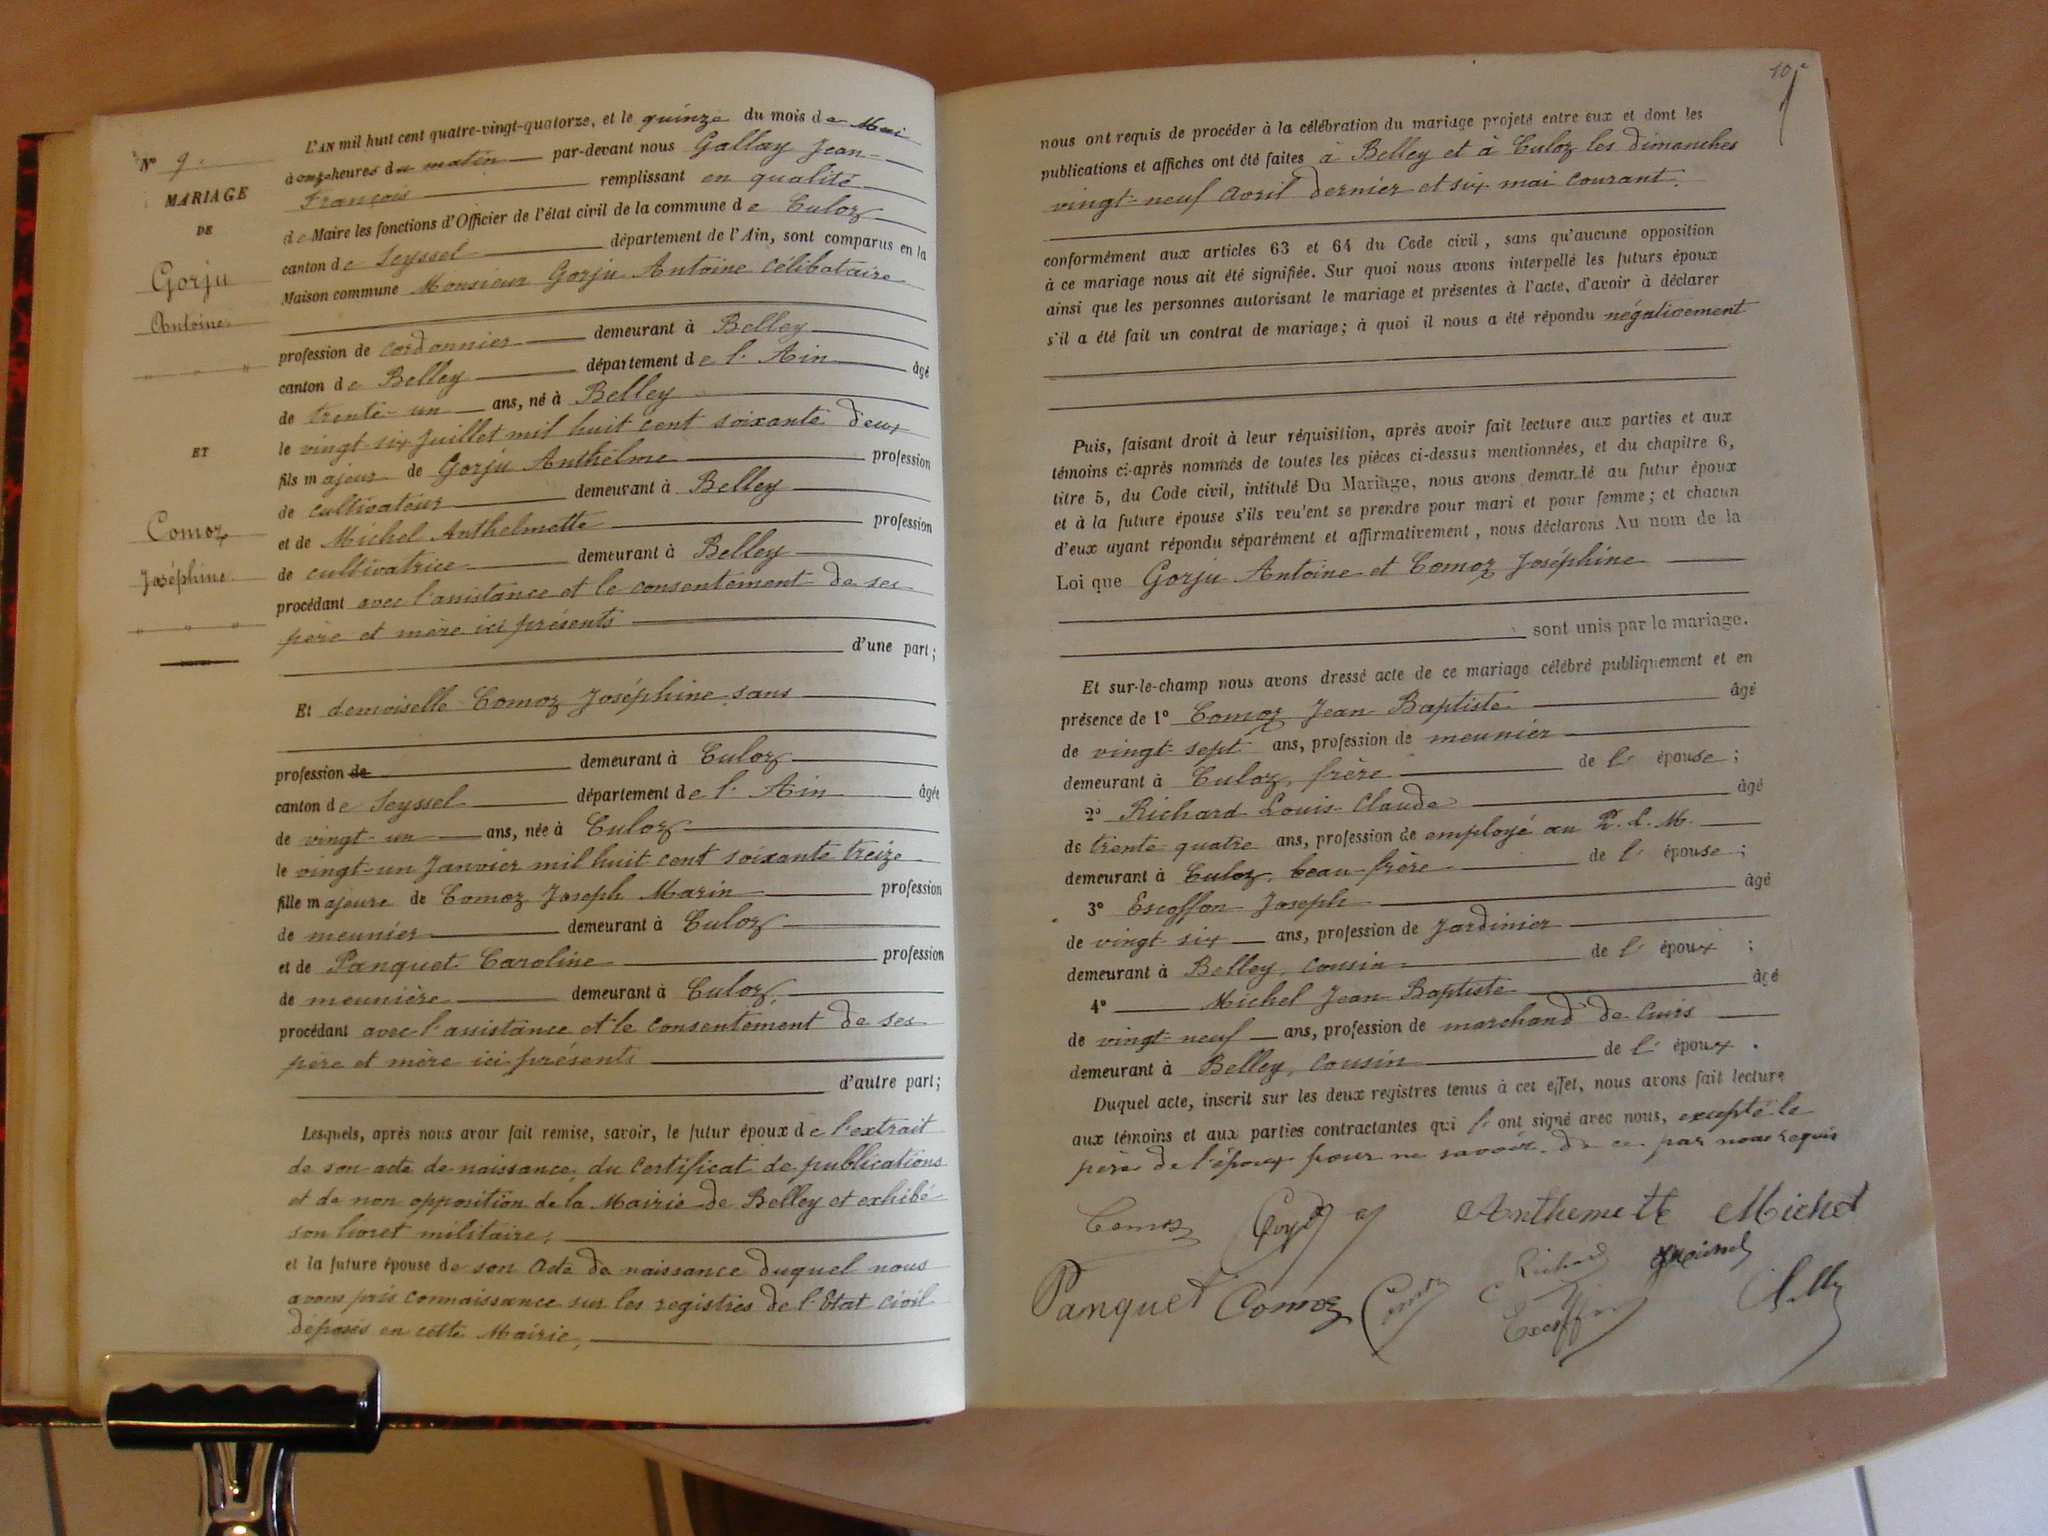 N° 9.
MARIAGE
DE
Gorju
Antoine
ET
Comoz
Joséphine
L'AN mil huit cent quatre-vingt-quatorze, et le quinze du mois de Mai
à onze heures du matin par-devant nous Gallay Jean-
François remplissant en qualité
de Maire les fonctions d'Officier de l'état civil de la commune de Culoz
canton de Seyssel département de l'Ain, sont comparus en la
Maison commune Monsieur Gorju Antoine célibataire
profession de cordonnier demeurant à Belley
canton de Belley département de l'Ain âgé
de trente-un ans, né à Belley
le vingt-six Juillet mil huit cent soixante deux
fils majeur de Gorju Anthelme profession
de cultivateur demeurant à Belley
et de Michel Anthelmette profession
de cultivatrice demeurant à Belley
procédant avec l'assistance et le consentement de ses
père et mère ici présents
d'une part;
Et demoiselle Comoz Joséphine sans
profession de demeurant à Culoz
canton de Seyssel département de l'Ain âgée
de vingt-un ans, née à Culoz
le vingt-un Janvier mil huit cent soixante treize
fille majeure de Comoz Joseph Marin profession
de meunier demeurant à Culoz
et de Panquet Caroline profession
de meunière demeurant à Culoz,
procédant avec l'assistance et le consentement de ses
père et mère ici présents
d'autre part;
Lesquels, après nous avoir fait remise, savoir, le futur époux de l'extrait
de son acte de naissance, du certificat de publications
et de non opposition de la Mairie de Belley et exhibé
son livret militaire;
et la future épouse de son acte de naissance duquel nous
avons pris connaissance sur les registres de l'Etat civil
déposés en cette Mairie,
10e
nous ont requis de procéder à la célébration du mariage projeté entre eux et dont les
publications et affiches ont été faites à Belley et à Culoz les dimanches
vingt-neuf avril dernier et six mai courant.
conformément aux articles 63 et 64 du Code civil, sans qu'aucune opposition
à ce mariage nous ait été signifiée. Sur quoi nous avons interpellé les futurs époux
ainsi que les personnes autorisant le mariage et présentes à l'acte, d'avoir à déclarer
s'il a été fait un contrat de mariage; à quoi il nous a été répondu négativement
Puis, faisant droit à leur réquisition, après avoir fait lecture aux parties et aux
témoins ci-après nommés de toutes les pièces ci-dessus mentionnées, et du chapitre 6,
titre 5, du Code civil, intitulé Du Mariage, nous avons demandé au futur époux
et à la future épouse s'ils veulent se prendre pour mari et pour femme; et chacun
d'eux ayant répondu séparément et affirmativement, nous déclarons Au nom de la
Loi que Gorju Antoine et Comoz Joséphine
sont unis par le mariage.
Et sur-le-champ nous avons dressé acte de ce mariage célébré publiquement et en
présence de 1° Comoz Jean-Baptiste âgé
de vingt-sept ans, profession de meunier
demeurant à Culoz, frère de l'épouse;
2° Richard Louis-Claude âgé
de trente-quatre ans, profession de employé au P. L. M.
demeurant à Culoz, beau-frère de l'épouse;
3° Escoffon Joseph âgé
de vingt-six ans, profession de Jardinier
demeurant à Belley, cousin de l'époux;
4° Michel Jean-Baptiste âgé
de vingt-neuf ans, profession de marchand de cuirs
demeurant à Belley, cousin de l'époux.
Duquel acte, inscrit sur les deux registres tenus à cet effet, nous avons fait lecture
aux témoins et aux parties contractantes qui l'ont signé avec nous, excepté le
père de l'époux pour ne savoir, de ce par nous requis
Comoz Anthemette Michel
Richard
Panquet Comoz